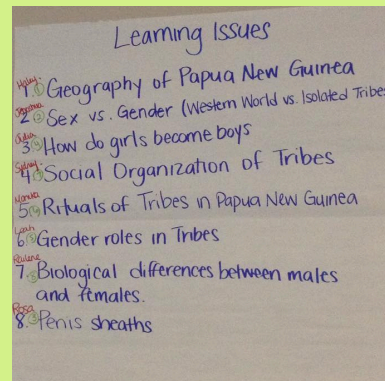 Learning Issues
1. Geography of Papua New Guinea
2. Sex vs. Gender (Western World vs. Isolated Tribes
3. How do girls become boys
Sydney
4. Social Organization of Tribes
5. Rituals of Tribes in Papua New Guinea
Leah
6. Gender roles in Tribes
7. Biological differences between males
and females.
Rosa
8. Penis sheaths